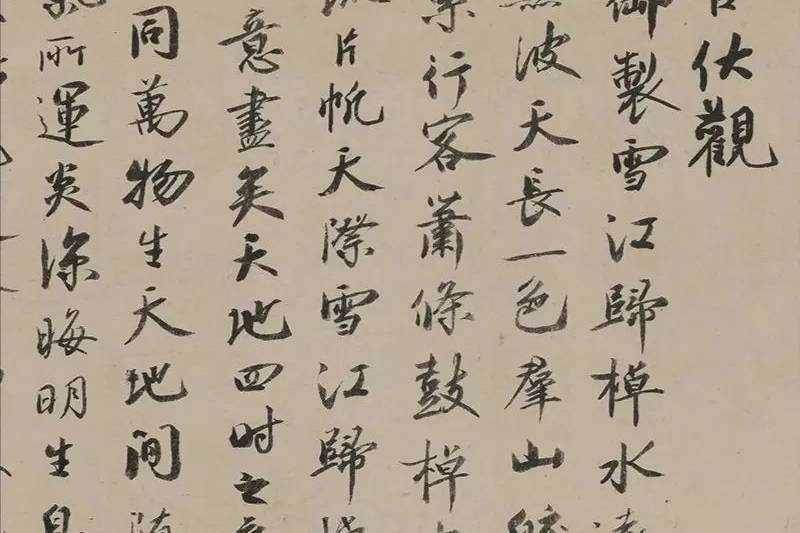 伏觀
御製雪江歸棹水遠
波天長一色羣山皎
行客蕭條鼓棹
片帆天際雪江歸棹
意盡矣天地四時之
同萬物生天地間隨
所運炎涼晦明生息